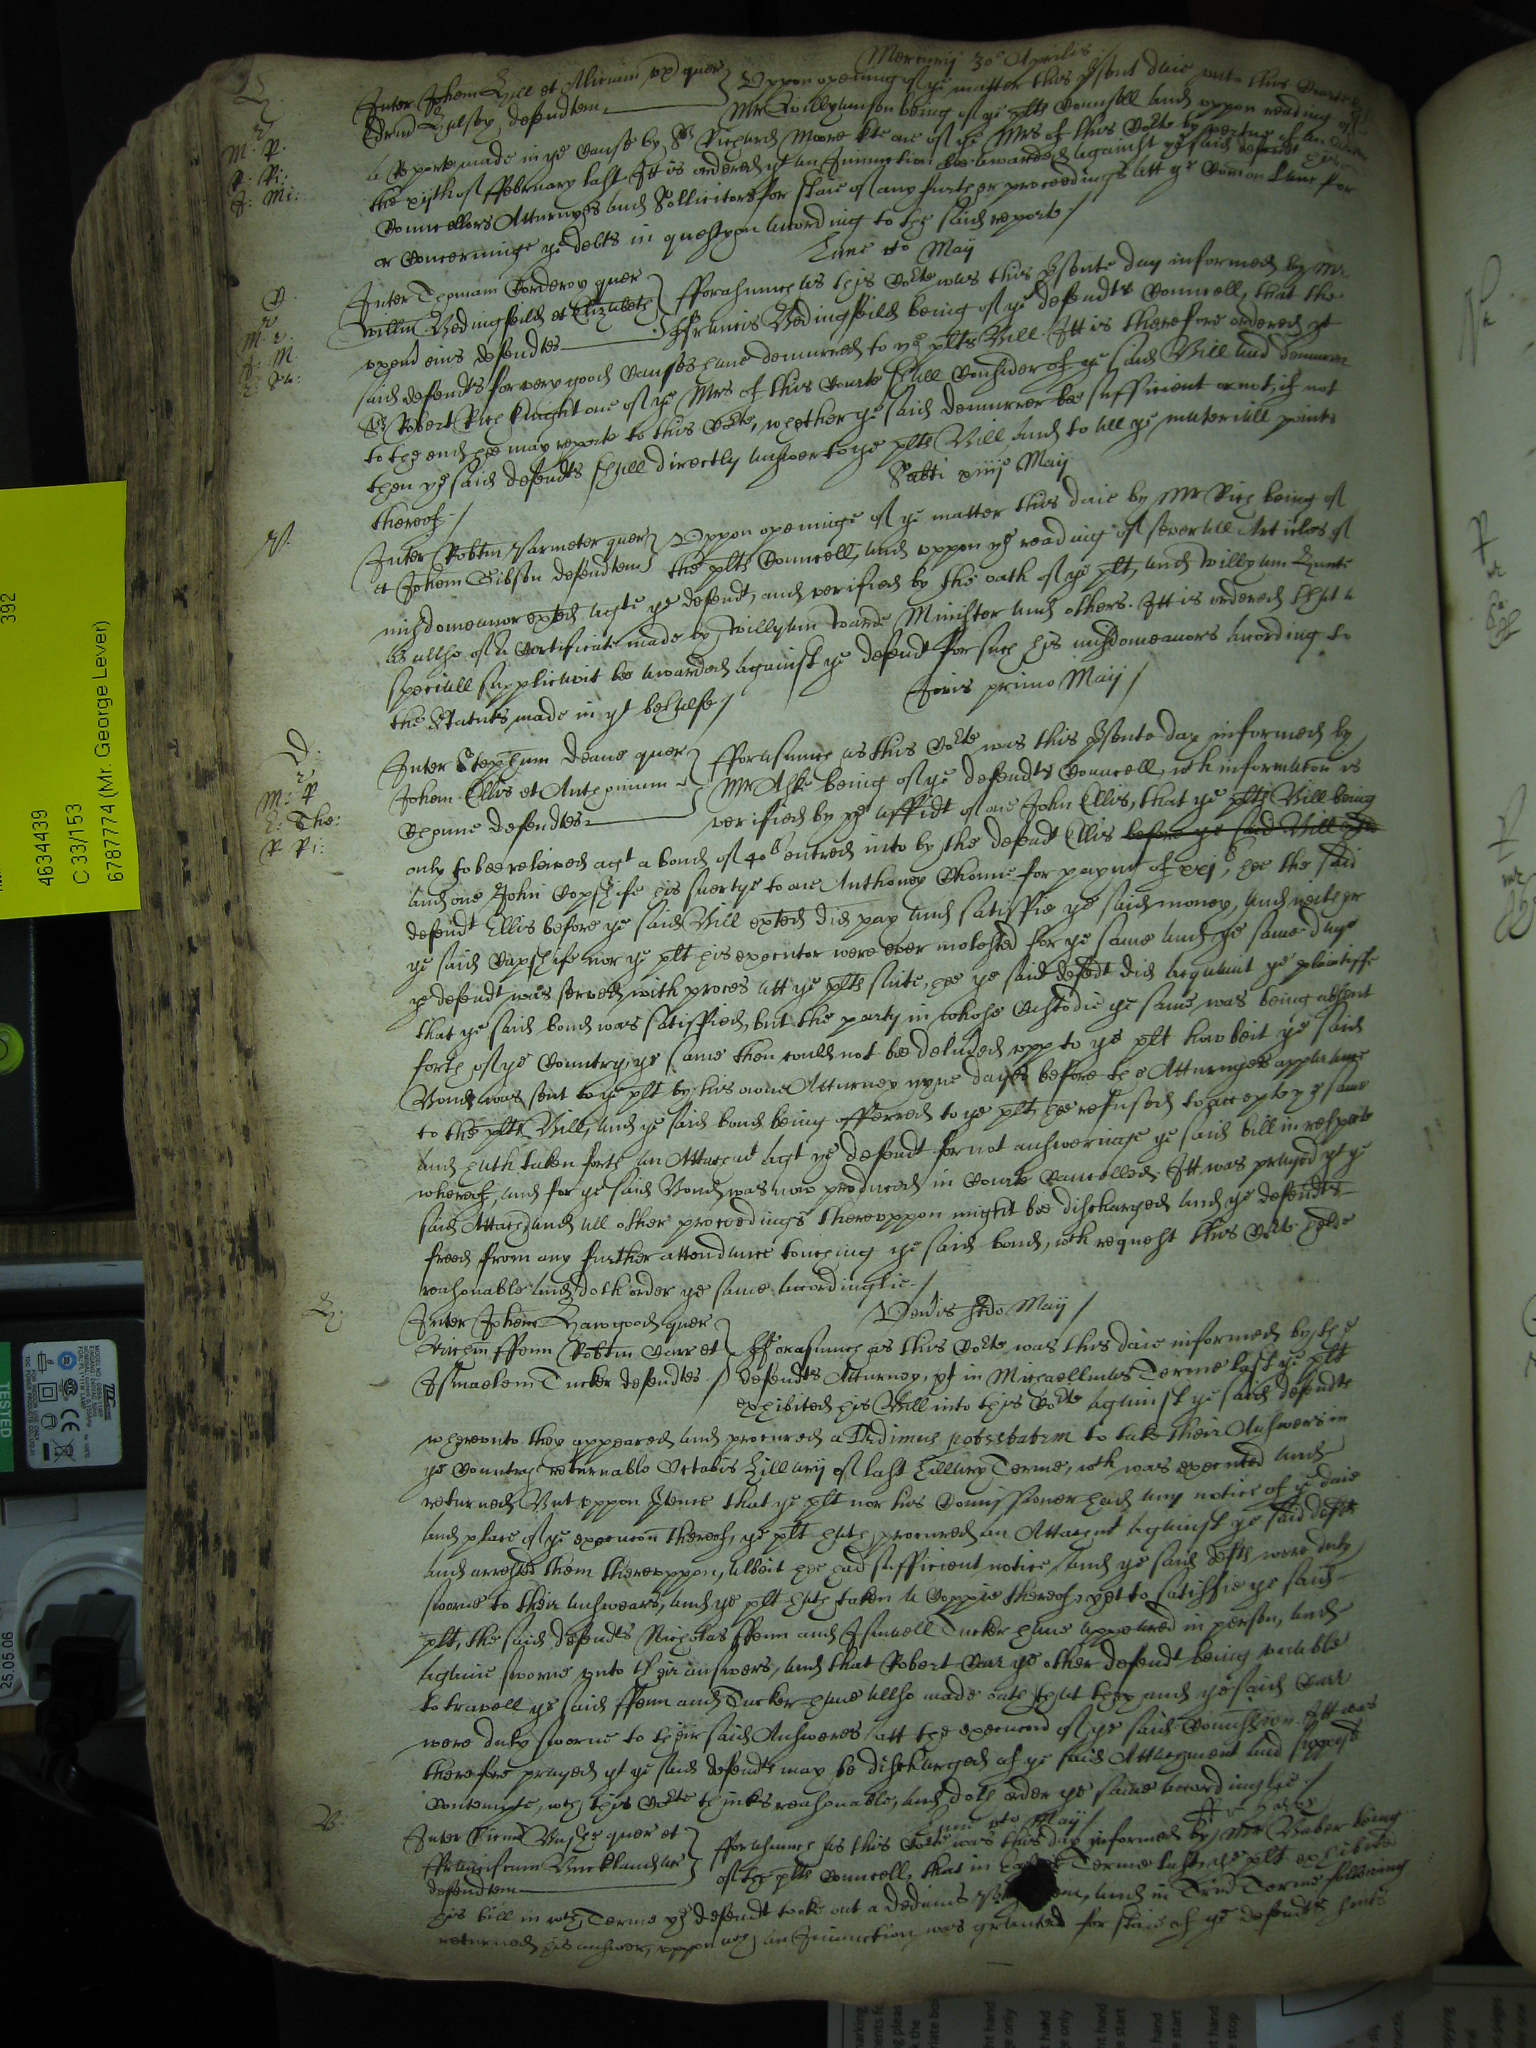 Mercurij 30o Aprilis
Inter Johem Hill et Miriam ux quer
Uppon opening of ye matter this psent daie unto this Courte by
defendtem
Mr Willyamson being of ye plts Counsell and uppon reading of
a Reporte made in ye Cause by Sr Richard Moore kte one of ye Mrs of this Corte by vertue of an order
the xijth of ffebruary last It is ordered yt an Iniunction bee awarded against ye said defendt his
Councellors Atturnyes and Sollicitors for staie of any further proceedings att ye Comon Lawe for
or Concerninge ye debts in question according to the said reporte /
Lune vto Maij
Inter Thomam Corderoy quer
Willm Bedingfeild et Elizabeth
uxorem eius defendtes
fforasmuch as this Corte was this psente day informed by Mr
ffrancis Bedingfeild being of ye defendts Councell, that the
said defendts for very good Causes have demurred to ye plts Bill. Itt is therefore ordered yt
Sr Robert Rich knight one of ye Mrs of this Courte shall Consider of ye said Bill and demurrer
to the end hee may reporte to this Corte, whether ye said demurrer bee sufficient or not, if not
then ye said defendts shall directly answer to ye plts Bill and to all ye materiall points
thereof /
Sabti Maij
Inter Robtm Parmeter quer
et Johem Gibson defendtem
Uppon openinge of ye matter this daie by Mr Rich being of
the plts Councell, and uppon ye reading of severall Articles of
misdemeanor exted agte ye defendt, and verified by the oath of ye plt, and Willyam
as allso of a Certificate made by Willyam Warde Minister and others. Itt is ordered that a
speciall supplicavit be awarded against ye defendt for such his misdemeanors according to
the Statuts made in yt behalfe /
Jovis primo Maij /
Inter Stephum Deane quer
Johem Ellis et
defendtes
fforasmuch as this Corte was this psente day informed by
Mr Aske being of ye defendts Councell, wch informacon is
verified by ye affidt of one John Ellis, that ye plts Bill being
only to bee releived agt a bond of 40li entred into by the defendt Ellis before ye said Bill exted
and one John Copshife his suertye to one Anthoney for paymt of xxjli, hee the said
defendt Ellis before ye said Bill exted did pay and satisfie ye said money, and neither
ye said Copshife nor ye plt his executor were ever molested for ye same and ye same daye
ye defendt was served with proces att ye plts suite, hee ye said defedt did acquaint ye plaintiffe
that ye said bond was satisfied, but the party in whose Custodie ye same was being absent
forth of ye Countrey, ye same then could not be deliued upp to ye plt howbeit ye said
Bond was sent to ye plt by his owne Atturney nyne dayes before the Atturnyes
to the plts Bill, and ye said bond being offerred to ye plt, hee refused to accept ye same
and hath taken forth an Attachmt agt ye defendt for not answeringe ye said bill in respecte
whereof, and for ye said Bond was now produced in Courte Cancelled. Itt was prayed yt ye
said Attachmt and all other proceedings thereuppon might bee discharged and ye defendts
freed from any further attendance touching ye said bond, wch request this Corte helde
reasonable and doth order ye same accordinglie /
Venris scdo Maij /
Inter Johem Hawgood quer
Nichm ffenn Robtm Carr et
Ismaelem Tucker defendtes
fforasmuch as this Corte was this daie informed by the
defendts Atturney, yt in Michaellmas Terme last ye plt
exhibited his Bill into this Corte against ye said defendts
whereunto they appeared and procured a Dedimus potestatem to take their Answers in
ye Countrey returnable Octabis Hillarij of last Hillary Terme, wch was executed and
returned But uppon ptence that ye plt nor his Comissioner had any notice of ye daie
and place of ye execucon thereof, ye plt hath procured an Attachmt against ye said defts
and arrested them thereuppon, albeit hee had sufficient notice, and ye said defts were duly
sworne to their answears, and ye plt hath taken a Coppie thereof, yet to satisfie ye said
plt, the said defendts Nicholas ffenn and Ismaell Tucker have appeared in person, and
againe sworne unto their answers, and that Robert Carr ye other defendt being unable
to travell ye said ffenn and Tucker have allso made oath that they and ye said Carr
were duly sworne to their said Answeres att the execucon of ye said Comission. Itt was
therefore prayed yt ye said defendts may be discharged of ye said Attachment and supposed
Contempte, wch this Corte thinks reasonable, and doth order ye same accordinglye /
Lune vto Maij /
Inter quer et
ffranciscum Buckland
defendtem
fforasmuch as this Corte was this day informed by Mr Baber being
of the plts Councell, that in Terme last, ye plt exhibited
his bill in wch Terme ye defendt tooke out a dedimus, and in Trin Terme following
returned his answer, uppon wch an Iniunction was granted for staie of ye defendts suite
392
4634439
C 33/153
67877774 (Mr. George Lever)
TESTED
25.05.06